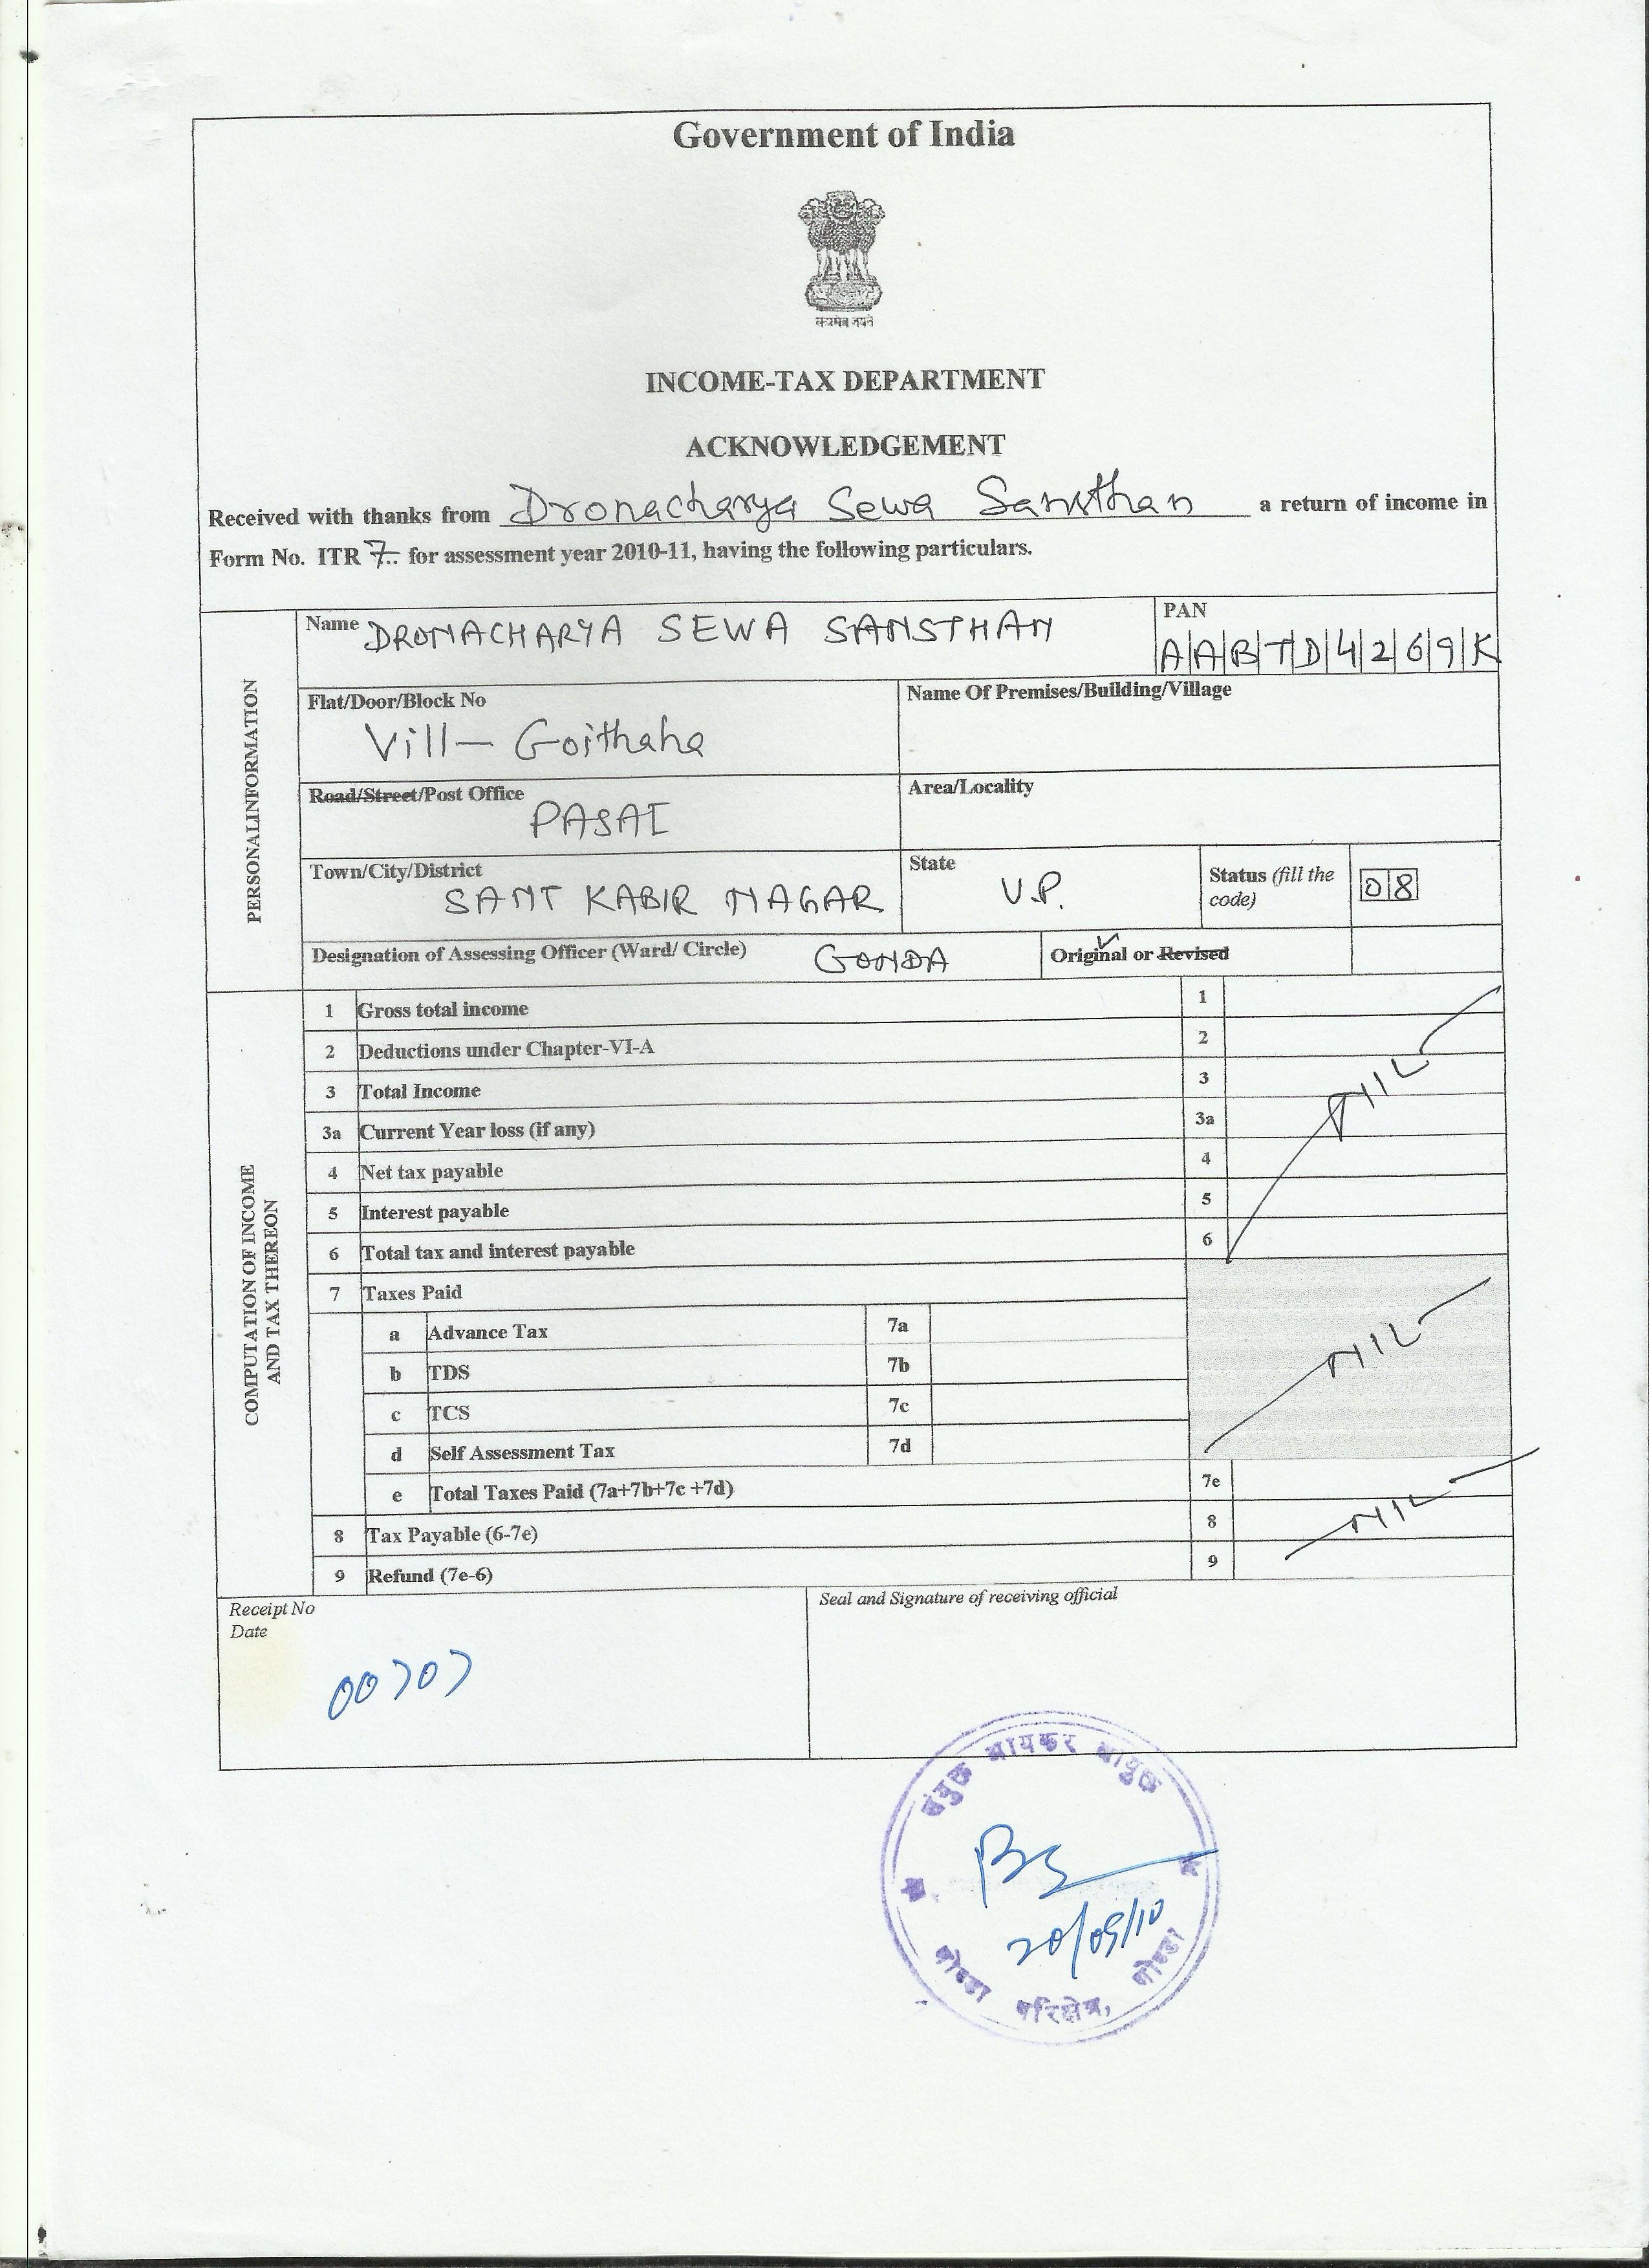 Government of India
सत्यमेव जयते
INCOME-TAX DEPARTMENT
ACKNOWLEDGEMENT
Received with thanks from Dronacharya Sewa Sansthan a return of income in
Form No. ITR 7.. for assessment year 2010-11, having the following particulars.
PERSONALINFORMATION
Name DRONACHARYA SEWA SANSTHAN
PAN
AABTD4269K
Flat/Door/Block No
Vill- Goithaha
Name Of Premises/Building/Village
Road/Street/Post Office
PASAI
Area/Locality
Town/City/District
SANT KABIR NAGAR
State
U.P.
Status (fill the code)
08
Designation of Assessing Officer (Ward/ Circle) GONDA
Original or Revised
COMPUTATION OF INCOME
AND TAX THEREON
1 Gross total income 1
2 Deductions under Chapter-VI-A 2
3 Total Income 3
3a Current Year loss (if any) 3a
NIL
4 Net tax payable 4
5 Interest payable 5
6 Total tax and interest payable 6
7 Taxes Paid
a Advance Tax 7a
b TDS 7b
NIL
c TCS 7c
d Self Assessment Tax 7d
e Total Taxes Paid (7a+7b+7c +7d) 7e
8 Tax Payable (6-7e) 8
NIL
9 Refund (7e-6) 9
Receipt No
Date
00707
Seal and Signature of receiving official
संयुक्त आयकर आयुक्त
20/09/10
गोण्डा परिक्षेत्र, गोण्डा